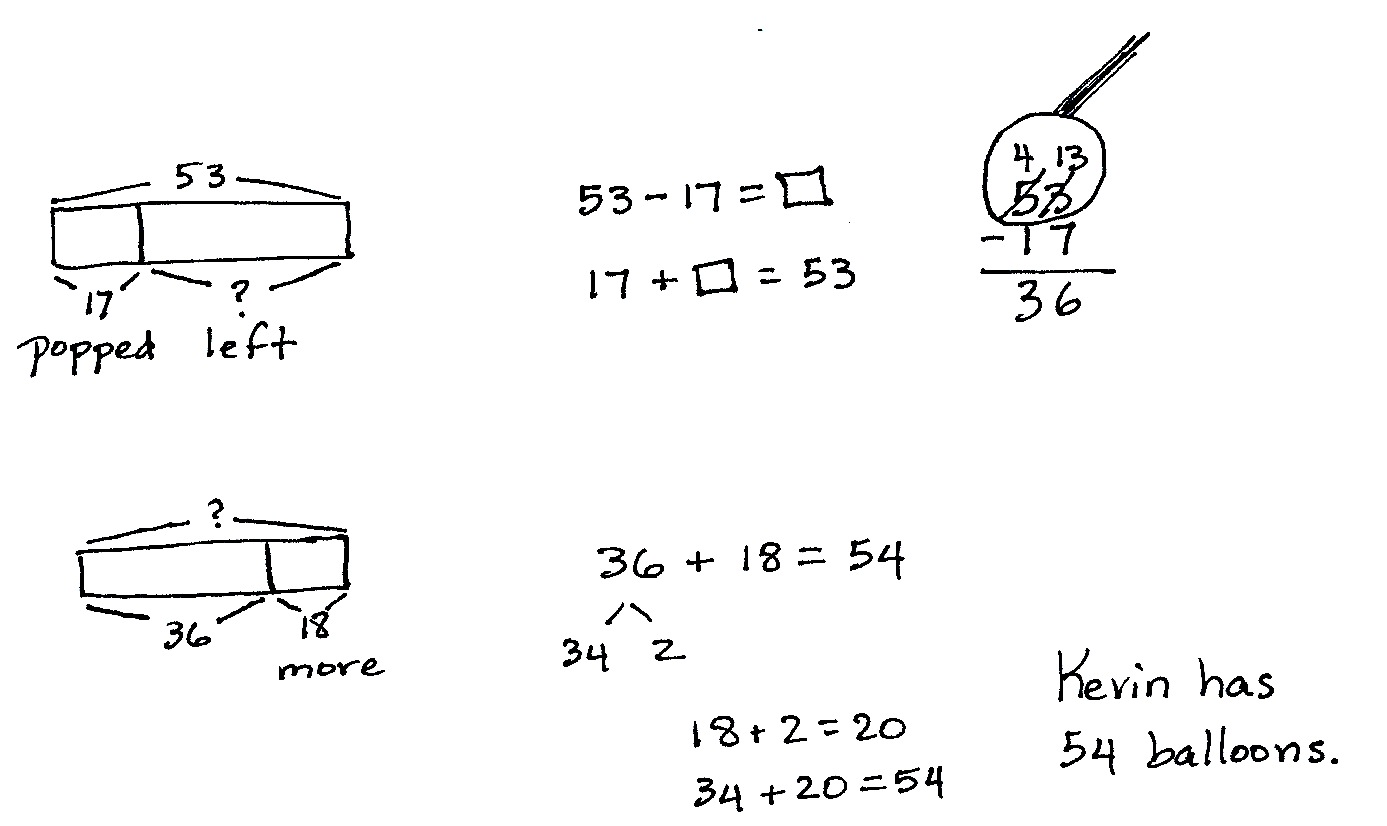 53
17 ?
popped left
53 - 17 = □
17 + □ = 53
4 13
53
- 17
36
?
36 18
more
36 + 18 = 54
34 2
18 + 2 = 20
34 + 20 = 54
Kevin has
54 balloons.